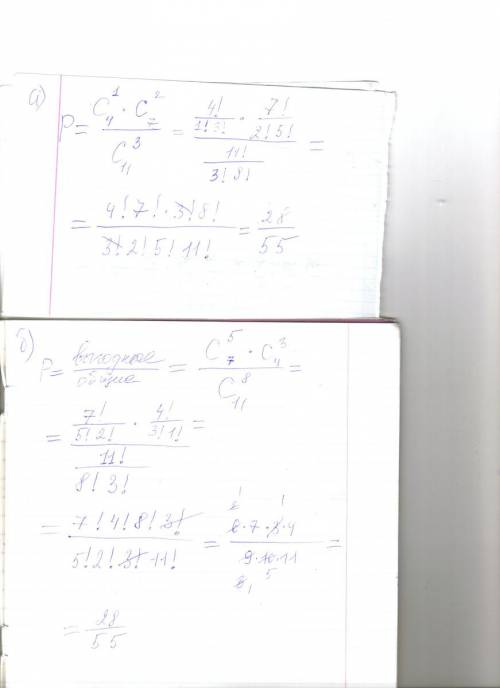 а)
P = (C₄¹ · C₇²) / C₁₁³ = (4!/(1!3!) · 7!/(2!5!)) / (11!/(3!8!)) =
= (4!7!·3!8!) / (3!2!5!11!) = 28/55
б)
P = выходные/общие = (C₇⁵ · C₄³) / C₁₁⁸ =
= (7!/(5!2!) · 4!/(3!1!)) / (11!/(8!3!)) =
= (7!4!8!3!) / (5!2!3!11!) = (6·7·3·4) / (9·10·11) =
= 28/55